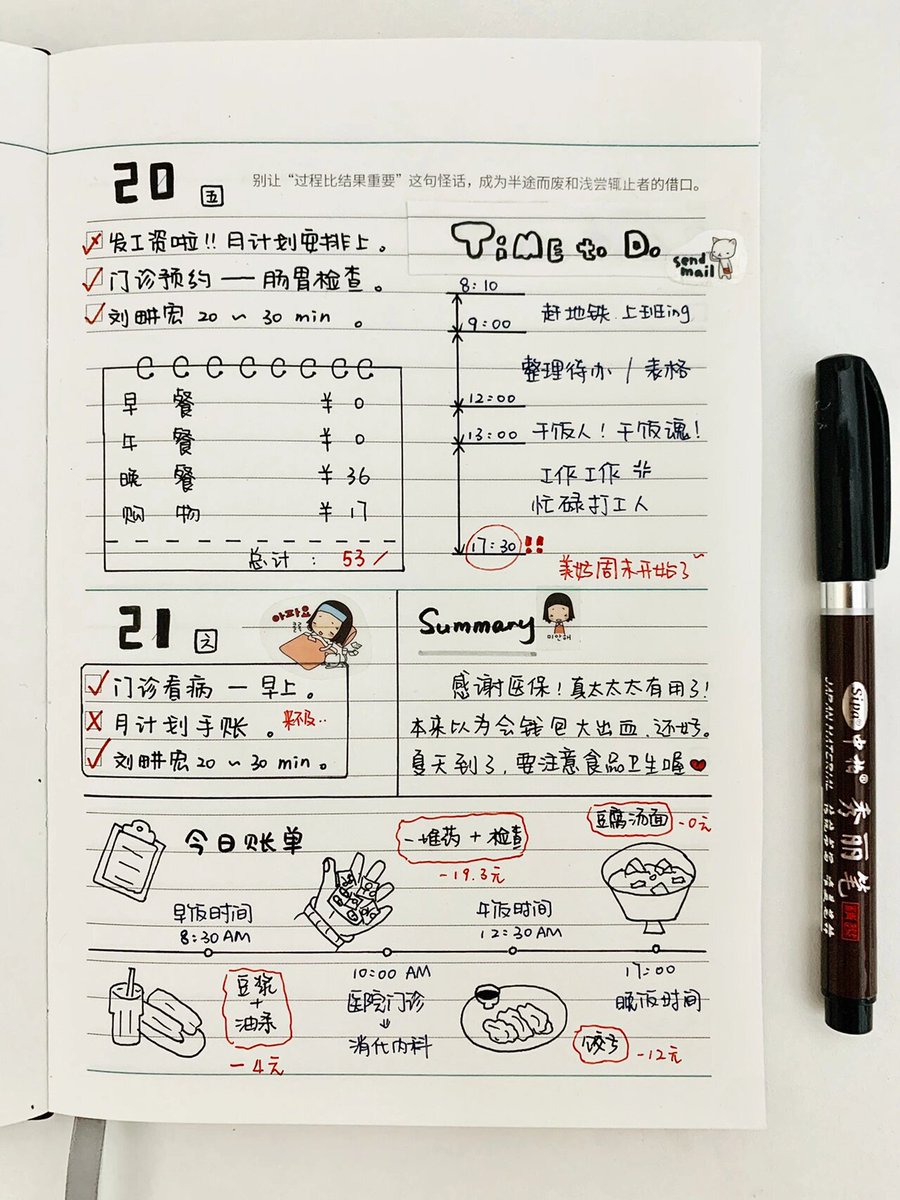 20 五
别让“过程比结果重要”这句怪话，成为半途而废和浅尝辄止者的借口。
发工资啦!! 月计划安排上。
门诊预约 — 肠胃检查。
刘畊宏 20 ~ 30 min 。
早 餐 ¥ 0
午 餐 ¥ 0
晚 餐 ¥ 36
购 物 ¥ 17
总计 : 53/
TiME to Do
send
mail
8:10
赶地铁 上班ing
9:00
整理待办 / 表格
12:00
干饭人! 干饭魂!
13:00
工作工作
忙碌打工人
17:30 !!
美好周末开始了~
21 六
아파요
콜록
门诊看病 — 早上。
月计划手账 。 来不及..
刘畊宏 20 ~ 30 min 。
Summary
미안해
感谢医保! 真太太太有用了!
本来以为会钱包大出血, 还好。
夏天到了, 要注意食品卫生喔
今日账单
一堆药 + 检查
-19.3元
豆腐汤面 -0元
早饭时间
8:30 AM
午饭时间
12:30 AM
豆浆
+
油条
-4元
10:00 AM
医院门诊
消化内科
17:00
晚饭时间
饺子 -12元
Sipa 中柏®
秀丽笔
JAPAN MATERIAL